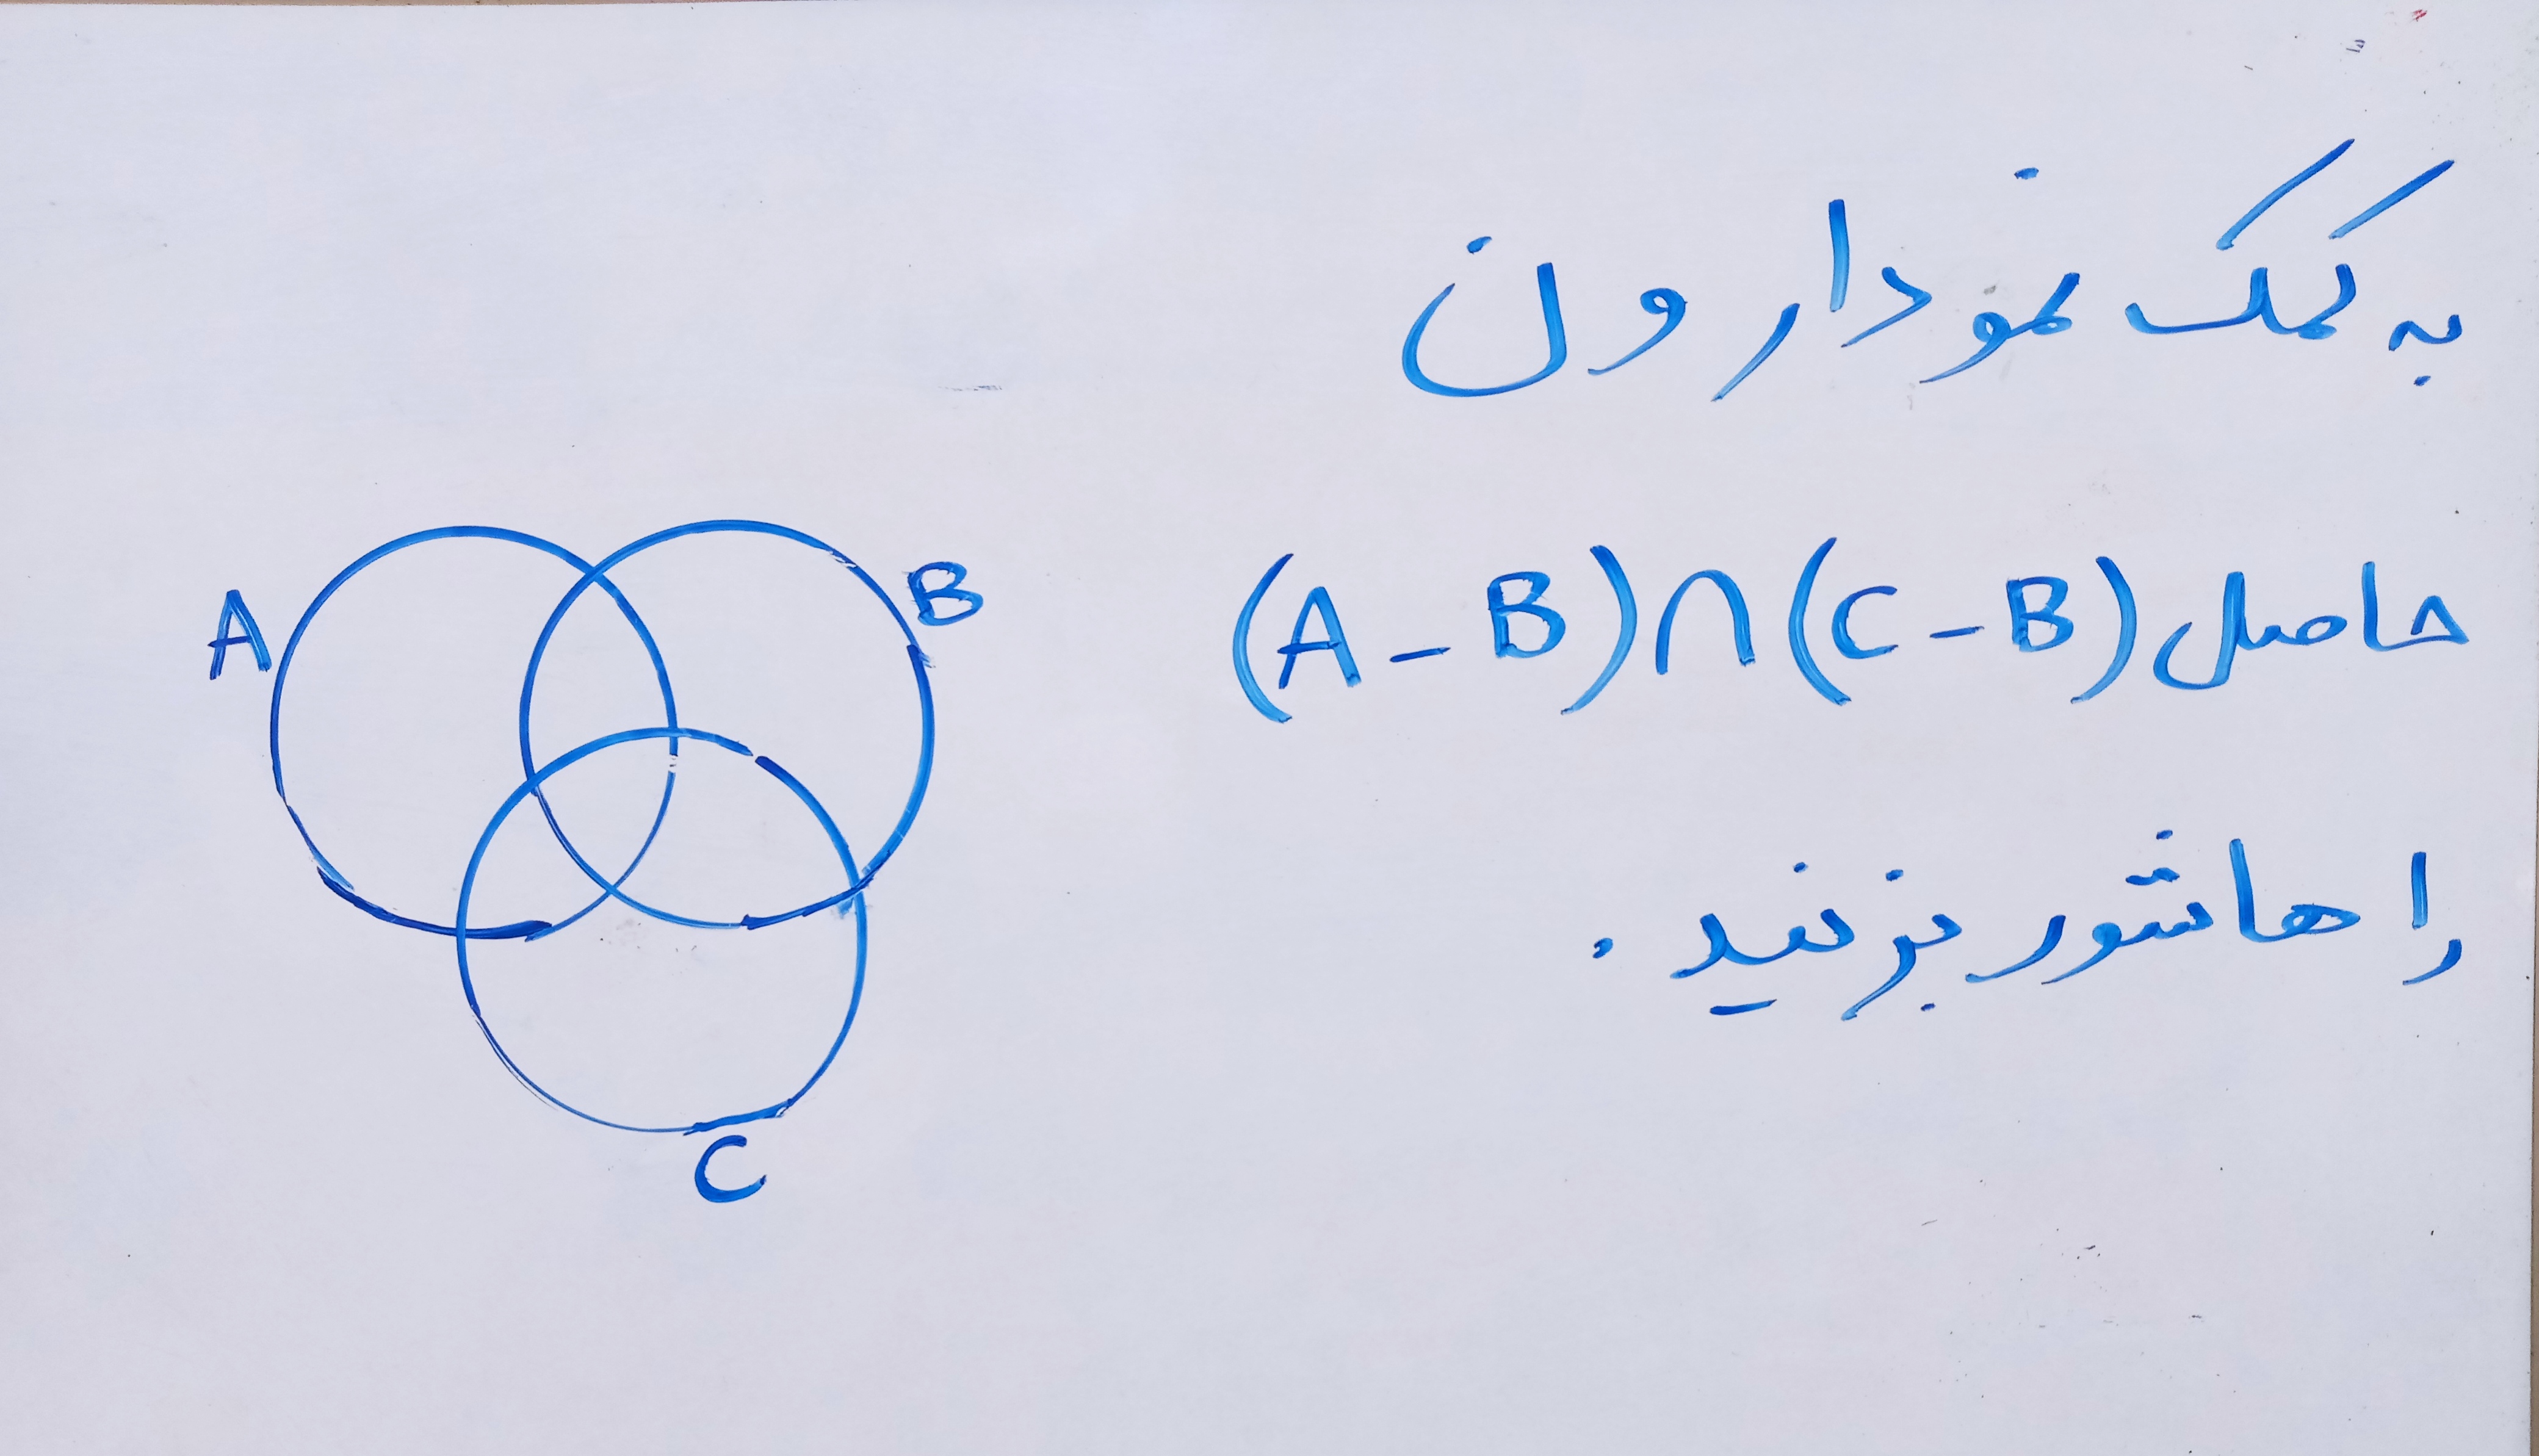 به کمک نمودار ون
حاصل (A - B) ∩ (C - B)
را هاشور بزنید .
A
B
C